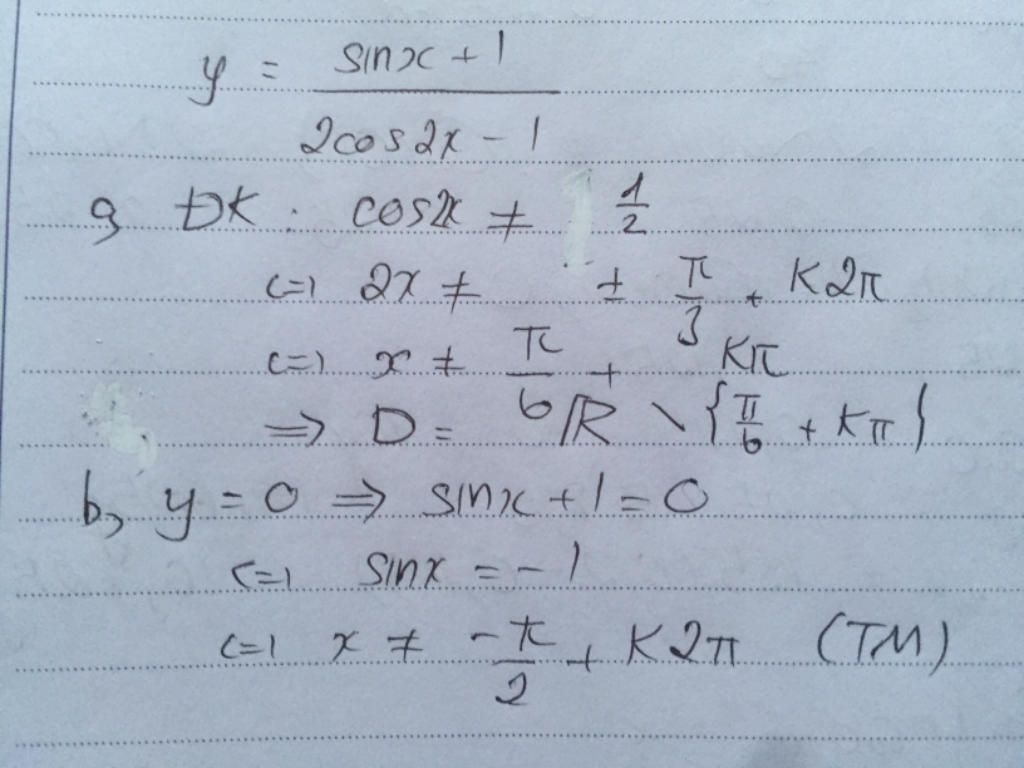 y = \frac{sinx + 1}{2cos2x - 1}
a, ĐK : cos2x ≠ \frac{1}{2}
<=> 2x ≠ ± \frac{π}{3} + K2π
<=> x ≠ \frac{π}{6} + Kπ
=> D = ℝ \ {\frac{π}{6} + Kπ}
b, y = 0 => sinx + 1 = 0
<=> sinx = -1
<=> x ≠ -\frac{π}{2} + K2π (TM)